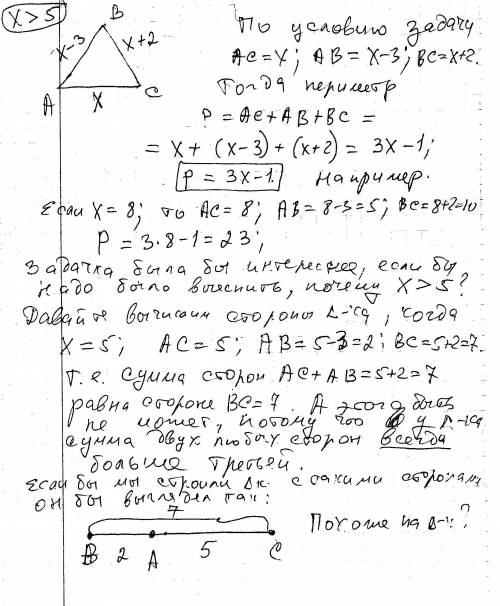 X > 5
B
X-3
X+2
A
X
C
По условию задачи
AC = X; AB = X-3; BC = X+2.
Тогда периметр
P = AC + AB + BC =
= X + (X-3) + (X+2) = 3X-1;
P = 3X-1. Например.
Если X = 8; то AC = 8; AB = 8-3=5; BC = 8+2=10
P = 3·8-1 = 23;
Задачка была бы интереснее, если бы
надо было выяснить, почему X > 5?
Давайте вычислим стороны Δ-ка, когда
X = 5; AC = 5; AB = 5-3 = 2; BC = 5+2=7.
Т.е. сумма сторон AC + AB = 5+2 = 7
равна стороне BC = 7. А этого быть
не может, потому что у Δ-ка
сумма двух любых сторон всегда
больше третьей.
Если бы мы строили Δк с такими сторонами
он бы выглядел так:
7
B 2 A 5 C
Похоже на Δ-к?